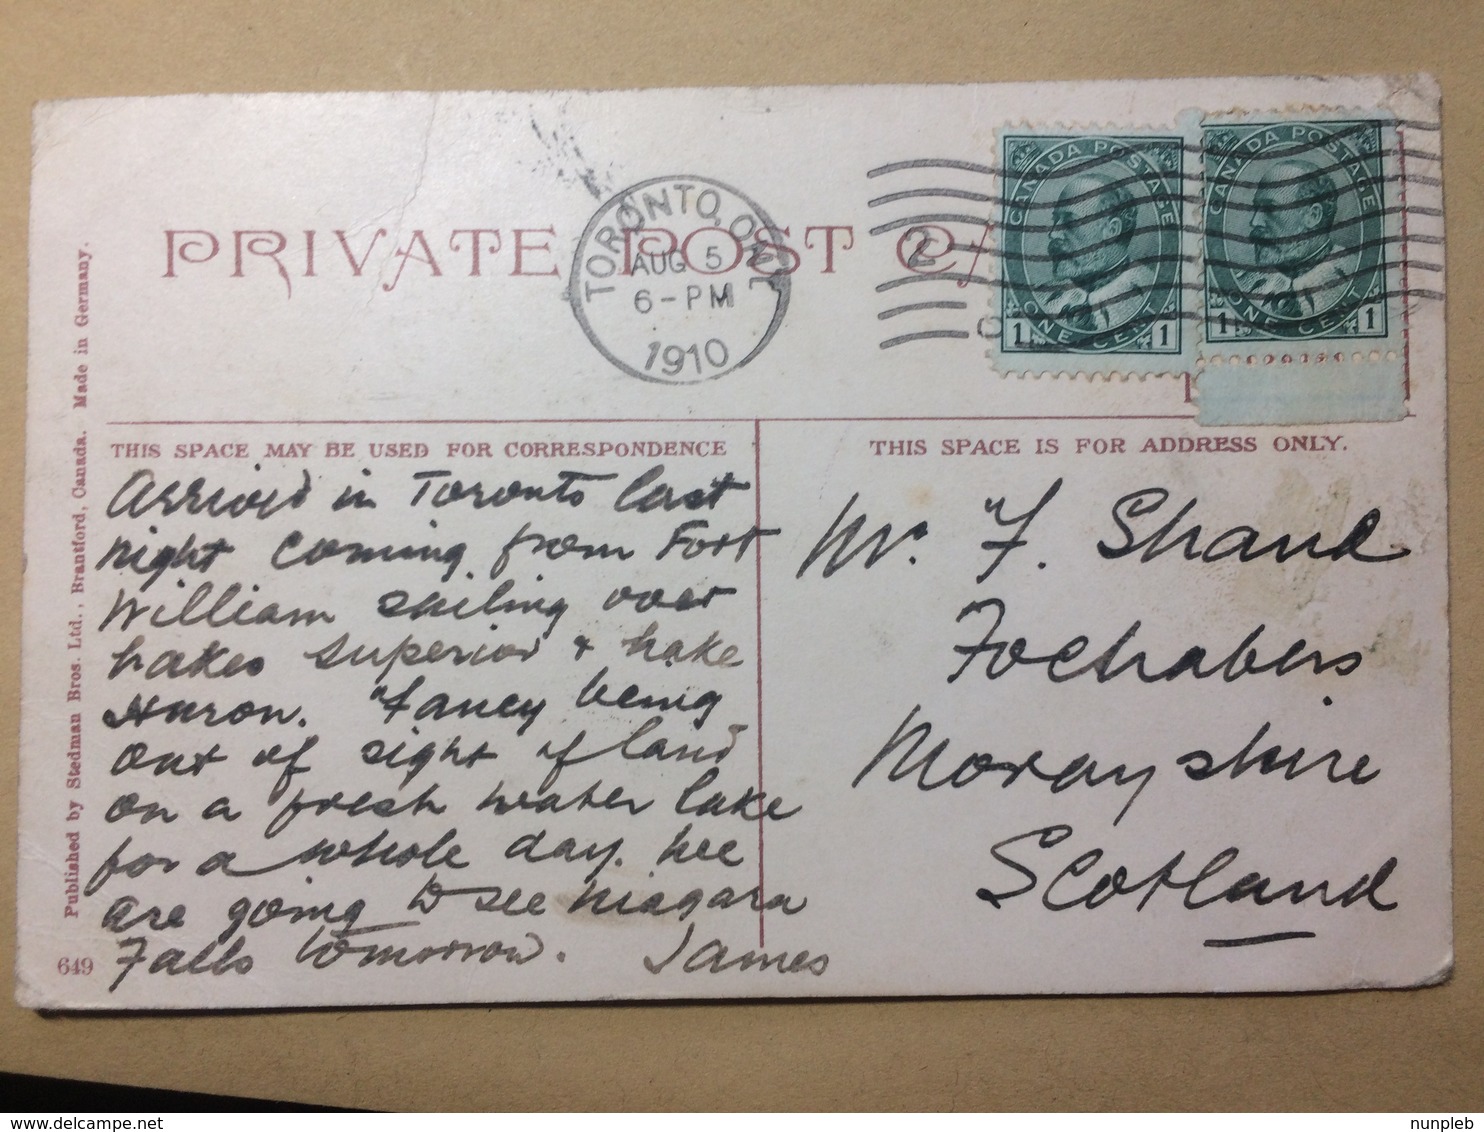 PRIVATE POST CA
TORONTO, ONT.
AUG 5
6-PM
1910
CANADA POSTAGE
1 ONE CENT 1
CANADA POSTAGE
1 ONE CENT 1
THIS SPACE MAY BE USED FOR CORRESPONDENCE
Arrived in Toronto last
night coming from Fort
William sailing over
Lakes Superior & Lake
Huron. Fancy being
out of sight of land
on a fresh water lake
for a whole day. We
are going to see Niagara
Falls tomorrow. James
THIS SPACE IS FOR ADDRESS ONLY.
Mr. F. Shand
Fochabers
Morayshire
Scotland
Published by Stedman Bros. Ltd., Brantford, Canada. Made in Germany.
649
nunpleb